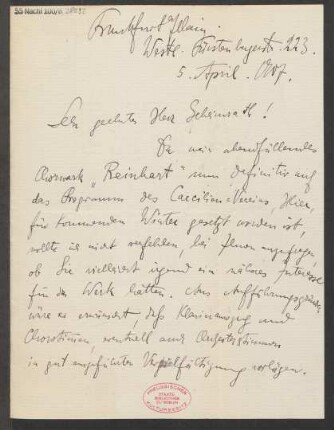 Frankfurt a/Main.
Westl. Fürstenbergerstr. 223.
5. April. 1907.
Sehr geehrter Herr Geheimrath!
Da mein abendfüllendes
Chorwerk „Reinhart" nun definitiv auf
das Programm des Caecilien-Vereins, hier,
für kommenden Winter gesetzt worden ist,
wollte ich nicht verfehlen, bei Ihnen anzufragen,
ob Sie vielleicht irgend ein näheres Interesse
für das Werk hätten. Aus Aufführungsgründen
wäre es erwünscht, daß Klavierauszug und
Chorstimmen, eventuell auch Orchesterstimmen
in gut ausgeführter Vervielfältigung vorlägen.
PREUSSISCHER
STAATS-
BIBLIOTHEK
ZU BERLIN
KULTURBESITZ